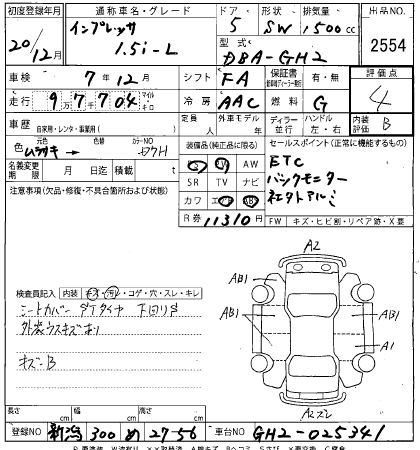 初度登録年月 通称車名・グレード ドア 形状 排気量 出品NO.
20/12月 インプレッサ 1.5i-L 5 SW 1500cc 2554
型式 DBA-GH2
車検 7年12月 シフト FA 保証書 有・無 評価点
走行 9万7千704 マイル キロ 冷房 AAC 燃料 G 4
車歴 自家用・レンタ・事業用( ) 定員 人 外車モデル 年 ディーラー 並行 ハンドル 左・右 内装評価 B
元色 色替 カラーNO 装備品(純正品に限る) セールスポイント(正常に機能するもの)
ムラサキ → 色 47H PS PW AW ETC
名義変更期限 月 日迄 積載量 t SR TV ナビ バックモニター
注意事項(欠品・修復・不具合箇所および状態) カワ エアB AB 社外アルミ
R券 11310円 FW キズ・ヒビ割・リペア跡・X要
A2
検査員記入 内装 キズ・汚レ・コゲ・穴・スレ・キレ
シートカバー 下回りサ
外装ウスキズ有り
キズ・B
AB1 AB1
AB1 A1
A2
長さ cm 幅 cm 高さ cm
登録NO 新潟 300 め 27-56 車台NO GH2-025341